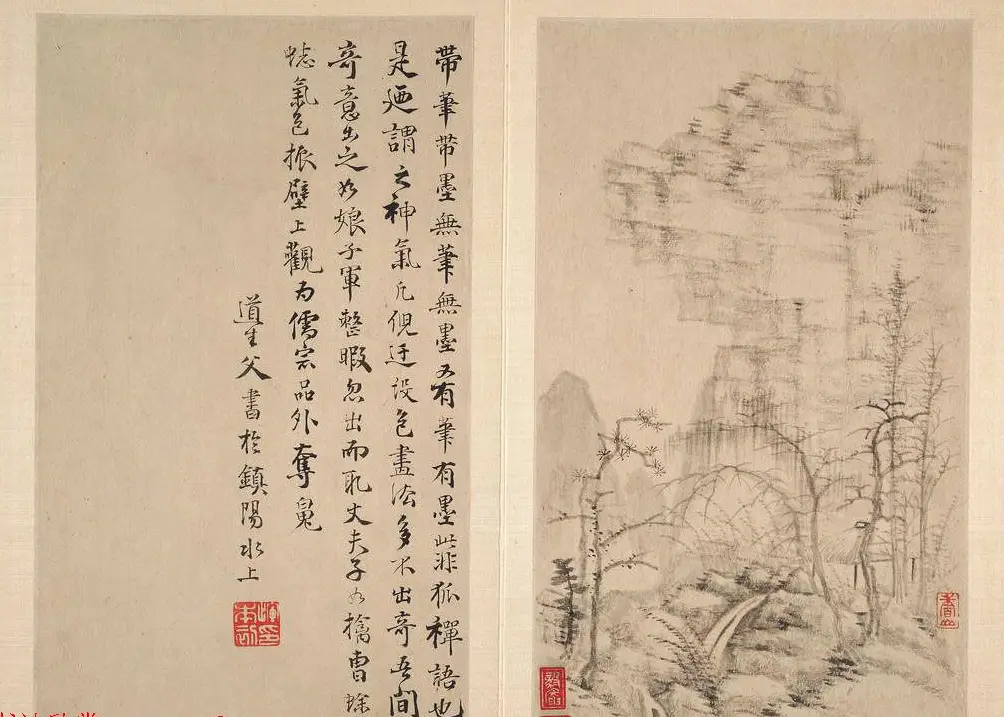 帶筆帶墨無筆無墨又有筆有墨此非狐禪語也
是迺謂之神氣凡倪迂設色畫法多不出奇吾間
奇意出之如娘子軍整暇忽出而耻丈夫子如擒曹
氣色振壁上觀為儒宗品外奪
道生父書於鎮陽水上
惲本初印